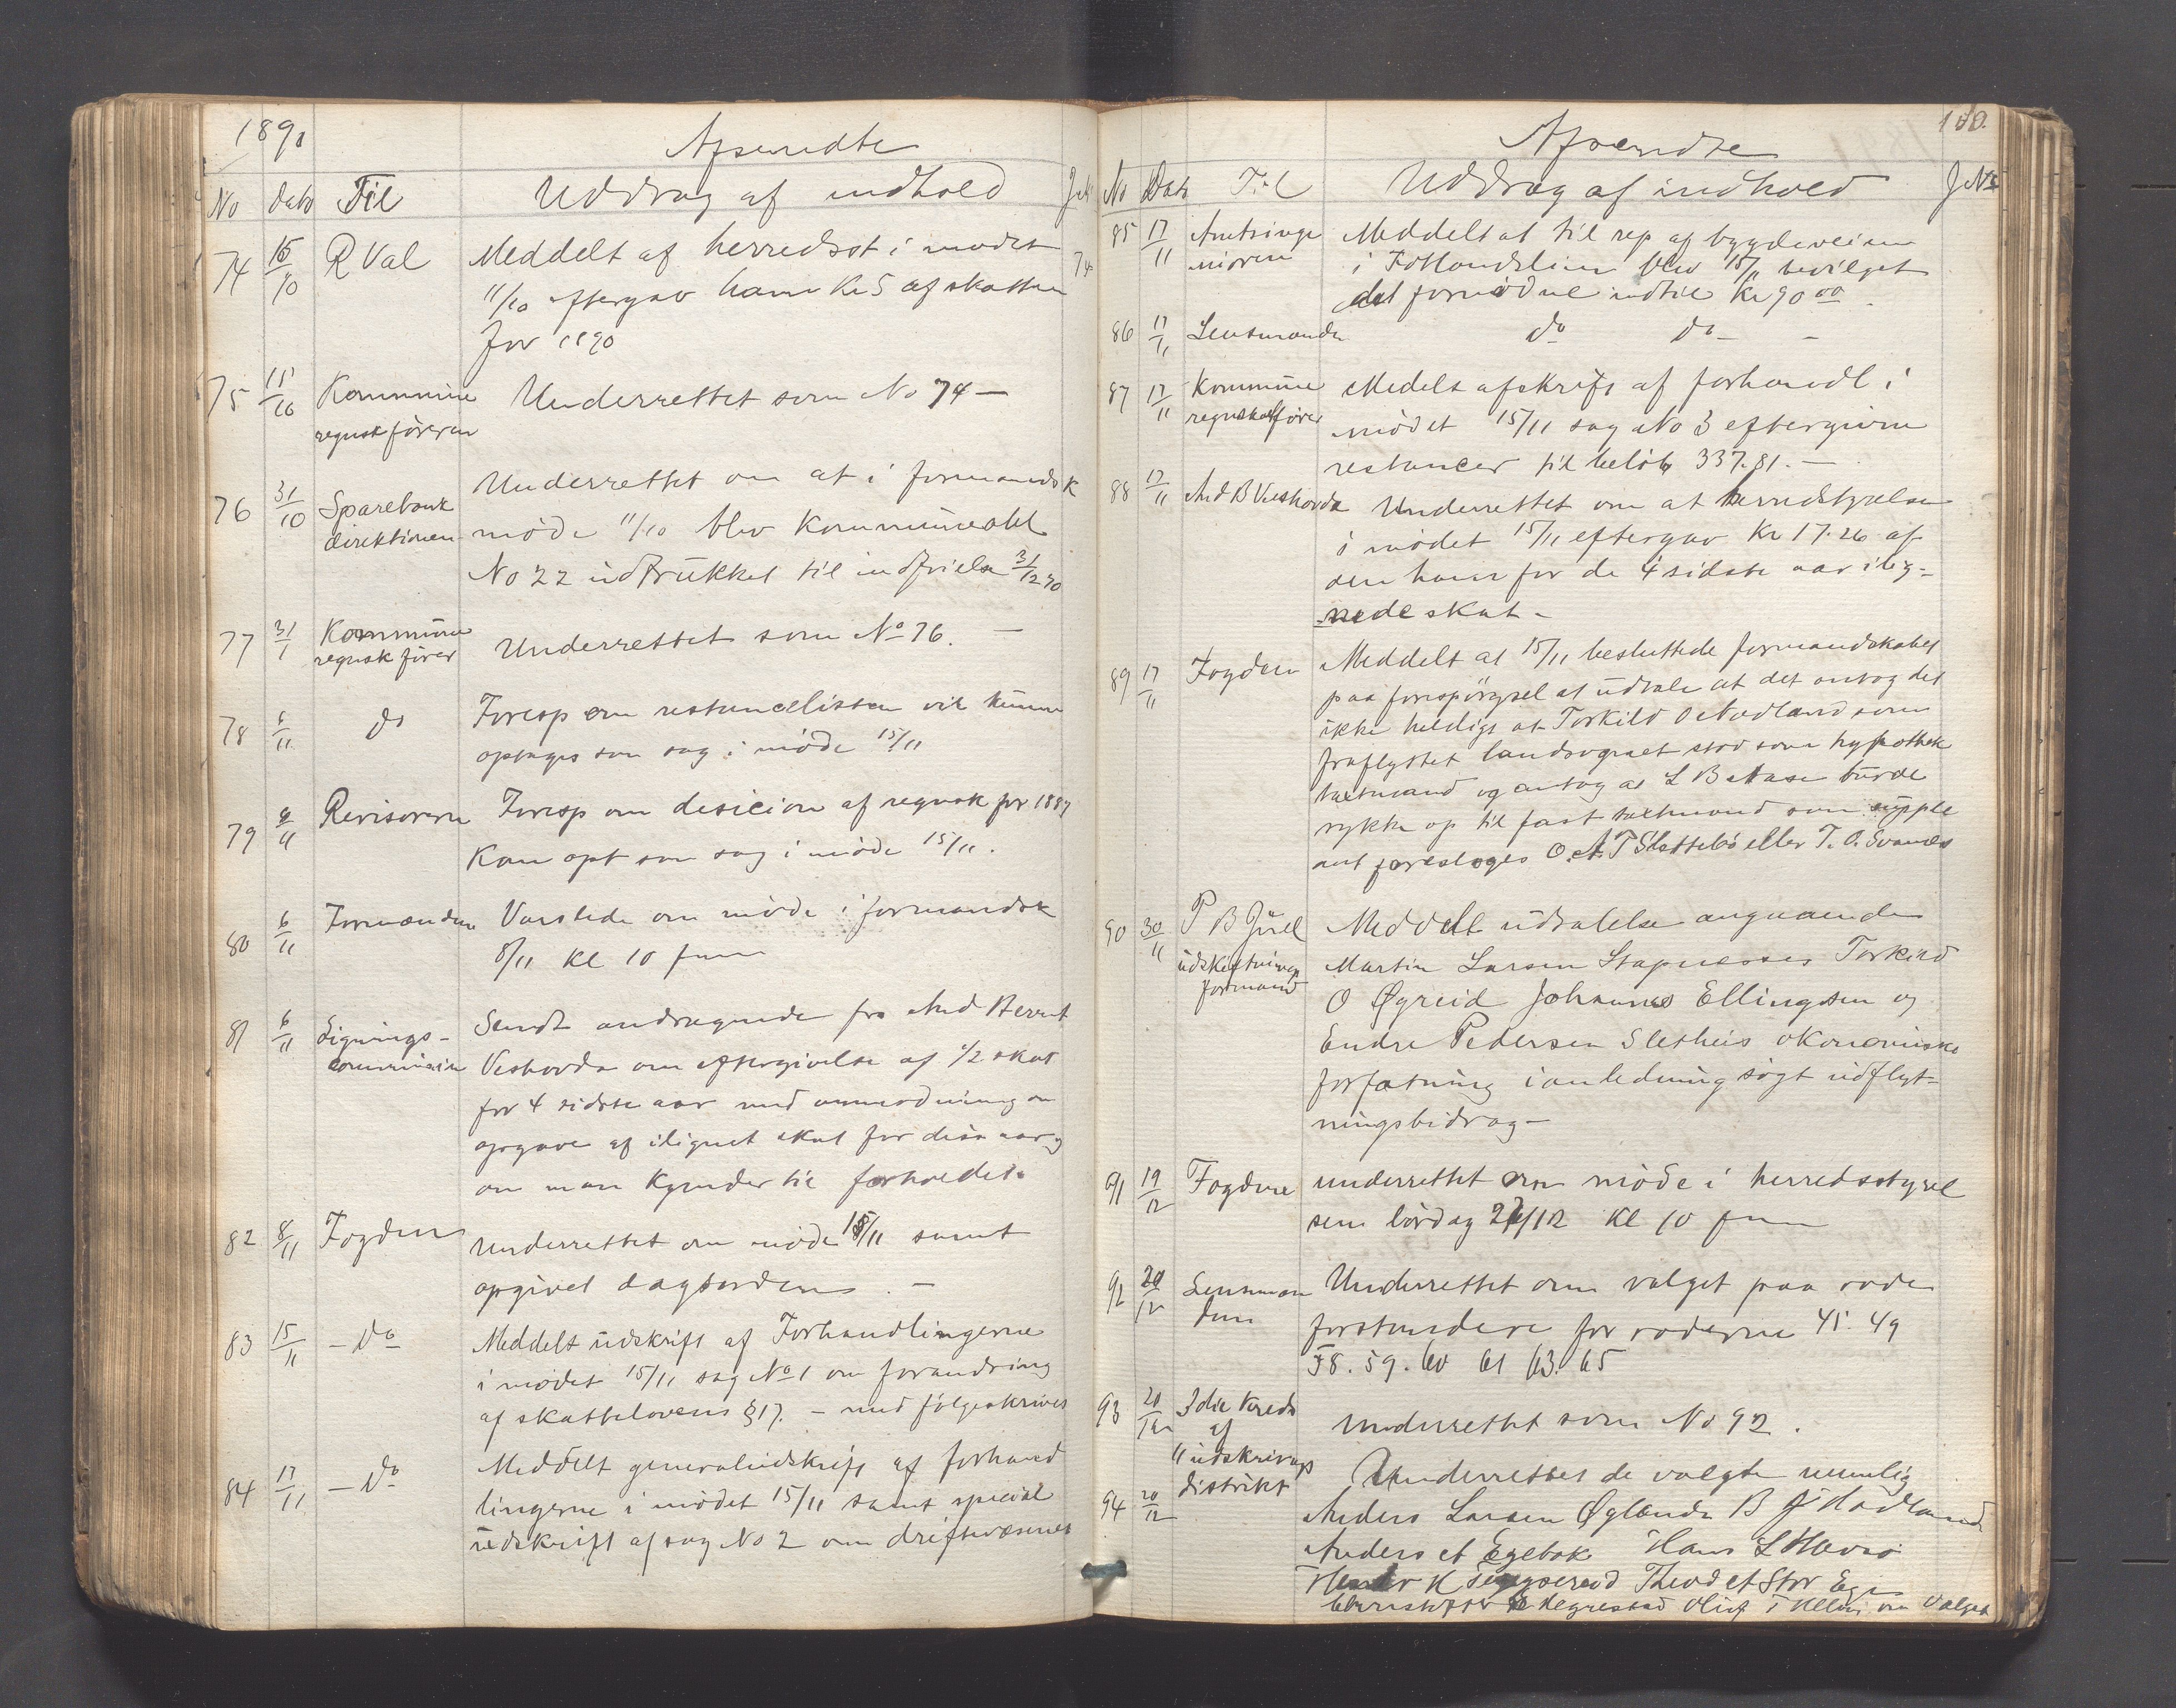 1891
Afsendte
No dato Til Uddrag af indhold
74 15/10 R Val Meddelt af herredsst i mødet 74
11/10 eftergav ham Kr 5 af skatten
for 1890
75 15/10 Kommune Underrettet som No 74 —
regnskføreren
76 31/10 Sparebank Underrettet om at i formandsk
direktionen møde 11/10 blev Kommuneobl
No 22 udtrukket til indfrielse 31/12 90
77 31/1 Kommune Underrettet som No 76. —
regnskfører
78 6/11 do Foresp om restancelisten vil kunne
optages som sag i møde 15/11
79 6/11 Revisoren Foresp om desicion af regnsk for 1889
Kan opt som sag i møde 15/11.
80 6/11 Formændene Varslede om møde i formandsk
8/11 kl 10 fm
81 6/11 Lignings- Sendt andragende fra And Bernt
commission Veshovda om eftergivelse af 1/2 skat
for 4 sidste aar med anmodning om
opgave af ilignet skat for disse aar og
om man kjender til forholdet.
82 8/11 Fogden Underrettet om møde 15/11 samt
opgivet dagsorden. —
83 15/11 — do Meddelt udskrift af Forhandlingerne
i mødet 15/11 sag No 1 om forandring
af skattelovens § 17. — med følgeskrives
84 17/11 — do Meddelt generaludskrift af forhand
lingerne i mødet 15/11 samt special
udskrift af sag No 2 om driftevæsenet
100.
Afsendte
No Dato Til Uddrag af indhold J No
85 17/11 Amtsinge Meddelt at til rep af bygdeveien
niøren i Fotlandslien blev 15/11 bevilget
det fornødne indtil Kr 90 00.
86 17/11 Lensmanden do do — —
87 17/11 Kommune Medelt afskrift af forhandl i
regnskabsfører mødet 15/11 sag No 3 eftergivne
restancer til beløb 337.81. —
88 17/11 And B Veshovda Underrettet om at herredstyrelsen
i mødet 15/11 eftergav Kr 17.26 af
den ham for de 4 sidste aar ilig-
nede skat —
89 17/11 Fogden Meddelt at 15/11 besluttede formandskabet
paa forespørgsel at udtale at det antog det
ikke heldigt at Torkild O Nodland som
fraflyttet landsognet stod som hypothek
taxtmand og antog at L B Aase burde
rykke op til fast taxtmand som supple
ant foresloges O. A. T Slettebø eller T. O. Svanæs
90 30/11 P B Juel Meddelt udtalelse angaaende
udskiftnings Martin Larsen Stapnesses Torkild
formand O Øgreid Johannes Ellingsen og
Endre Pedersen Sletheis økonomiske
forfatning i anledning søgt udflyt-
ningsbidrag —
91 19/12 Fogden underrettet om møde i herredsstyrel
sen lørdag 27/12 Kl 10 fm
92 20/12 Lensman Underrettet om valget paa rode
den forstandere for roderne 45. 49
58. 59. 60 61 63. 65
93 20/12 3die Kreds Underrettet som No 92.
af
11 udskrivngs
distrikt
94 20/12 Underrettet de valgte nemlig
Anders Larsen Øglænd B J Hadland
Anders A Egebak Hans L Hovsø
K Theod A Stor Ege
Hegrestad Oluf T om valget